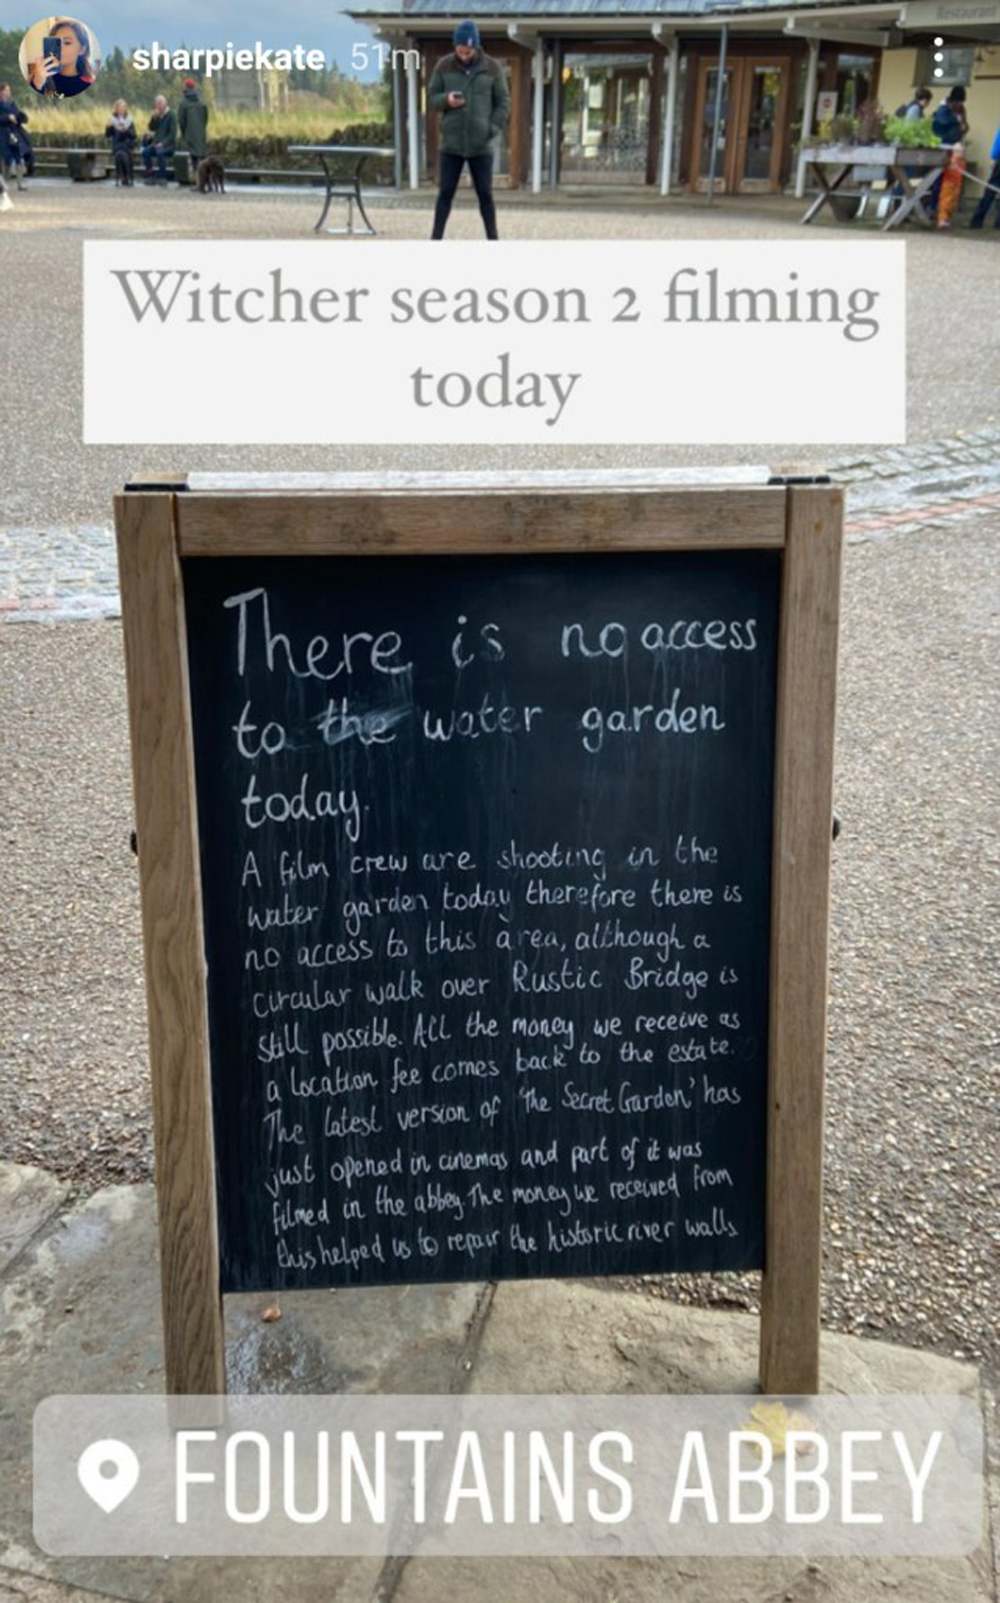 sharpiekate 51m
Restaurant
Witcher season 2 filming
today
There is no access
to the water garden
today.
A film crew are shooting in the
water garden today therefore there is
no access to this area, although a
circular walk over Rustic Bridge is
still possible. All the money we receive as
a location fee comes back to the estate.
The latest version of 'The Secret Garden' has
just opened in cinemas and part of it was
filmed in the abbey. The money we received from
this helped us to repair the historic river walls.
FOUNTAINS ABBEY